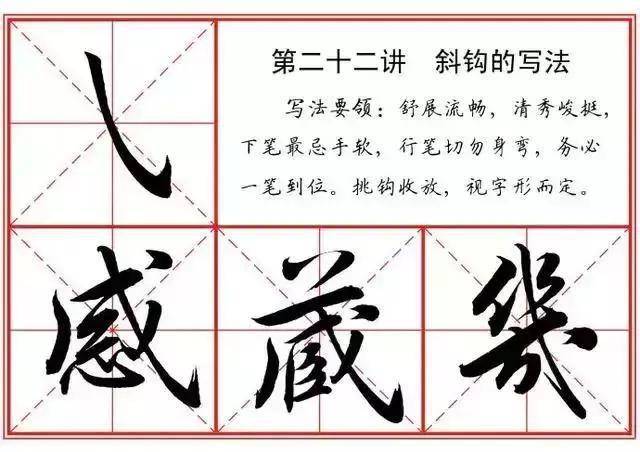 第二十二讲　斜钩的写法
写法要领：舒展流畅，清秀峻挺，
下笔最忌手软，行笔切勿身弯，务必
一笔到位。挑钩收放，视字形而定。
感 蔵 幾